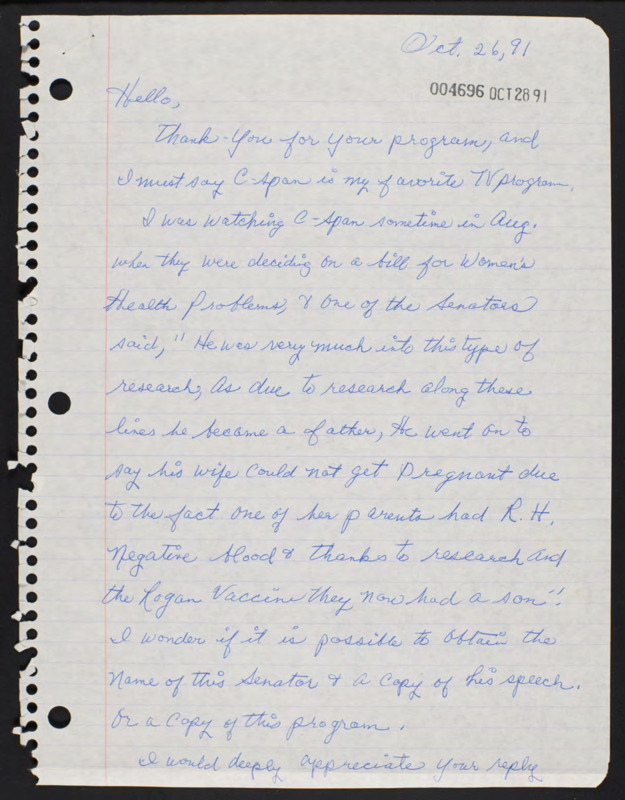 Oct. 26, 91
004696 OCT 28 91
Hello,
Thank-You for your program, and
I must say C-Span is my favorite TV program.
I was watching C-Span sometime in Aug.
when they were deciding on a bill for Women's
Health Problems, & one of the Senators
said, "He was very much into this type of
research, As due to research along these
lines he became a father, He went on to
say his wife could not get Pregnant due
to the fact one of her parents had R.H.
Negative blood & thanks to research and
the Rogan Vaccine they now had a son"!
I wonder if it is possible to obtain the
Name of this Senator & a Copy of his speech.
Or a Copy of this program.
I would deeply appreciate your reply